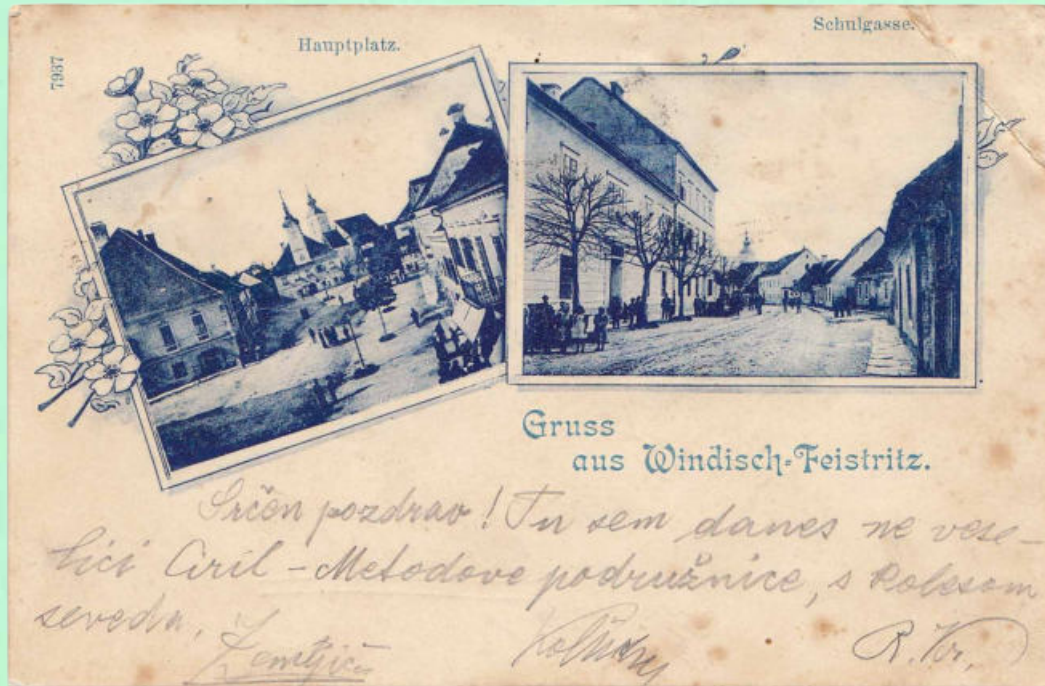 7937
Hauptplatz.
Schulgasse.
Gruss
aus Windisch-Feistritz.
Srčen pozdrav! Tu sem danes ne vese-
lici Ciril-Metodove podružnice, s kolesom
seveda.
R. Kr.